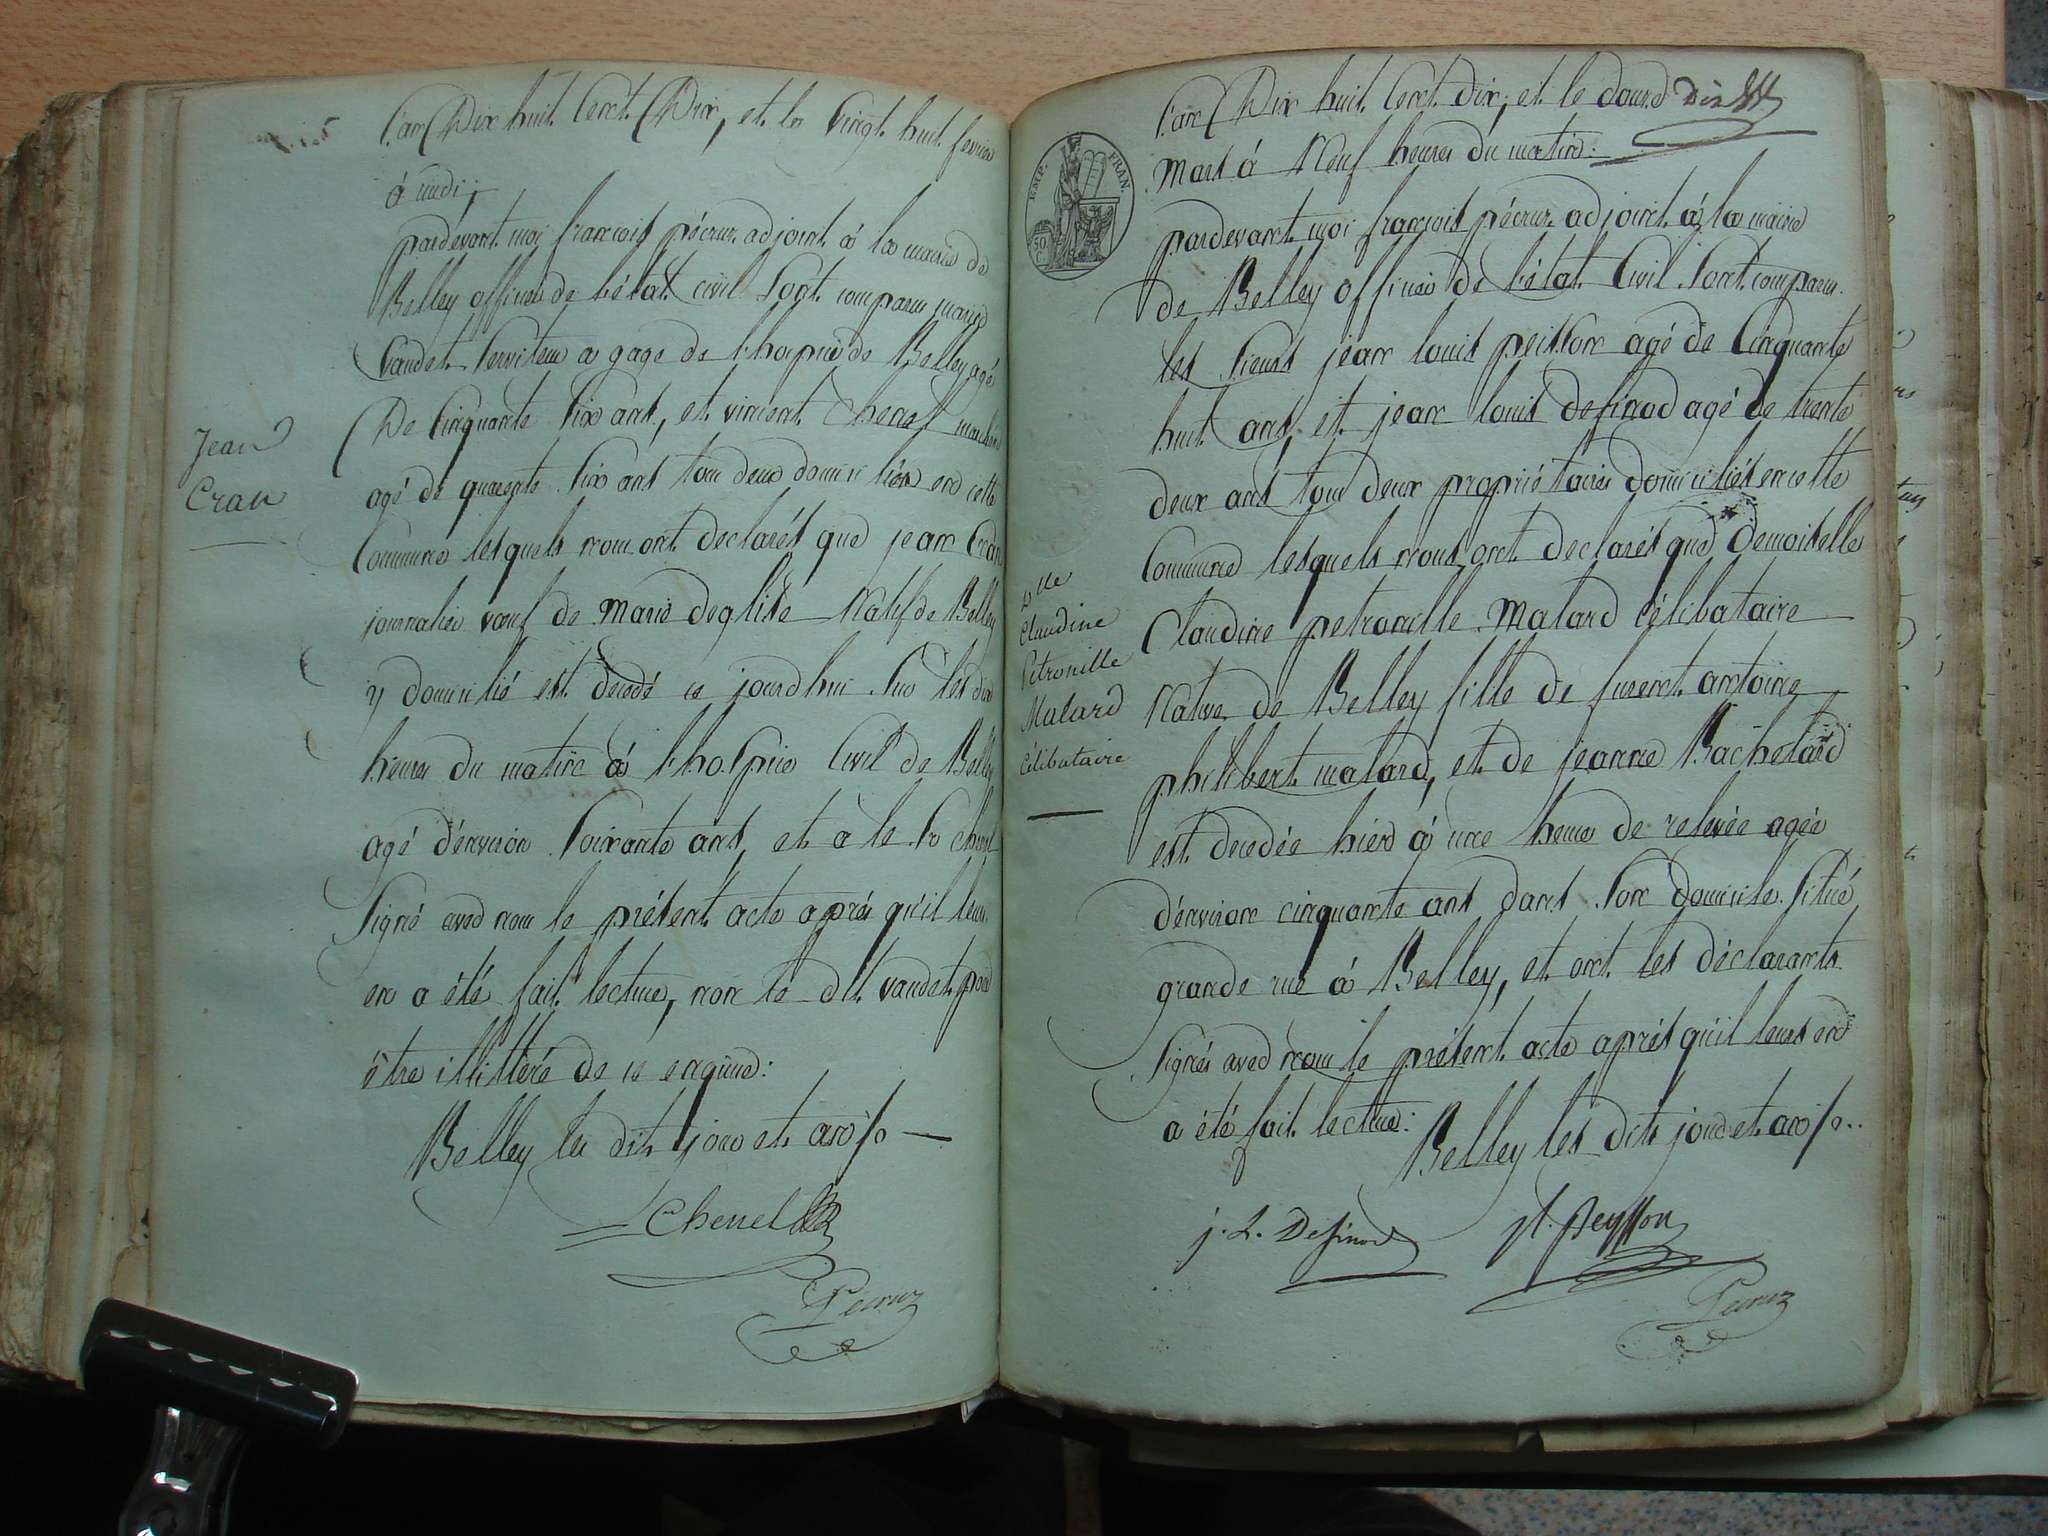 L'an Dix huit Cent Dix, et le Vingt huit fevrier
à midi,
pardevant moi françois pécruz adjoint à la mairie de
Belley officier de l'état civil sont comparus
Vaudet serviteur a gage de l'hospice de Belley agé
De Cinquante six ans, et vincent Chenel
agé de quarente six ans tous deux domiciliés en cette
Commune lesquels nous ont declarés que jean Cran
Jean
Cran
journalier veuf de marie deglise Natif de Belley
y domicilié est decedé ce jourd'hui sur les dix
heures du matin à l'hospice Civil de Belley
agé d'environ soixante ans, et a le sr Chenel
signé avec nous le présent acte après qu'il leur
en a été fait lecture, non le dit vaudet pour
être illittéré de ce enquis:
Belley les dits jour et an
Chenel
Pecruz
L'an Dix huit Cent dix, et le douze Dix
Mars à Neuf heures du matin:
EMP. FRAN.
50 C.
pardevant moi françois pécruz adjoint à la mairie
de Belley officier de l'état Civil sont comparus
les sieurs jean louis peisson agé de Cinquante
huit ans, et jean louis definod agé de trente
deux ans tous deux propriétaires domiciliés en cette
Commune lesquels nous ont declarés que Demoiselle
Dlle
Claudine
Petronille
Malard
célibataire
Claudine petronille Malard célibataire
Native de Belley fille de furent antoine
philibert malard, et de jeanne Bachelard
est decedée hier à une heure de relevée agée
d'environ cinquante ans dans son domicile situé
grande rue à Belley, et ont les déclarants
signés avec nous le présent acte après qu'il leurs en
a été fait lecture: Belley les dits jour et an
j. L. Definod jl. peysson
Pecruz